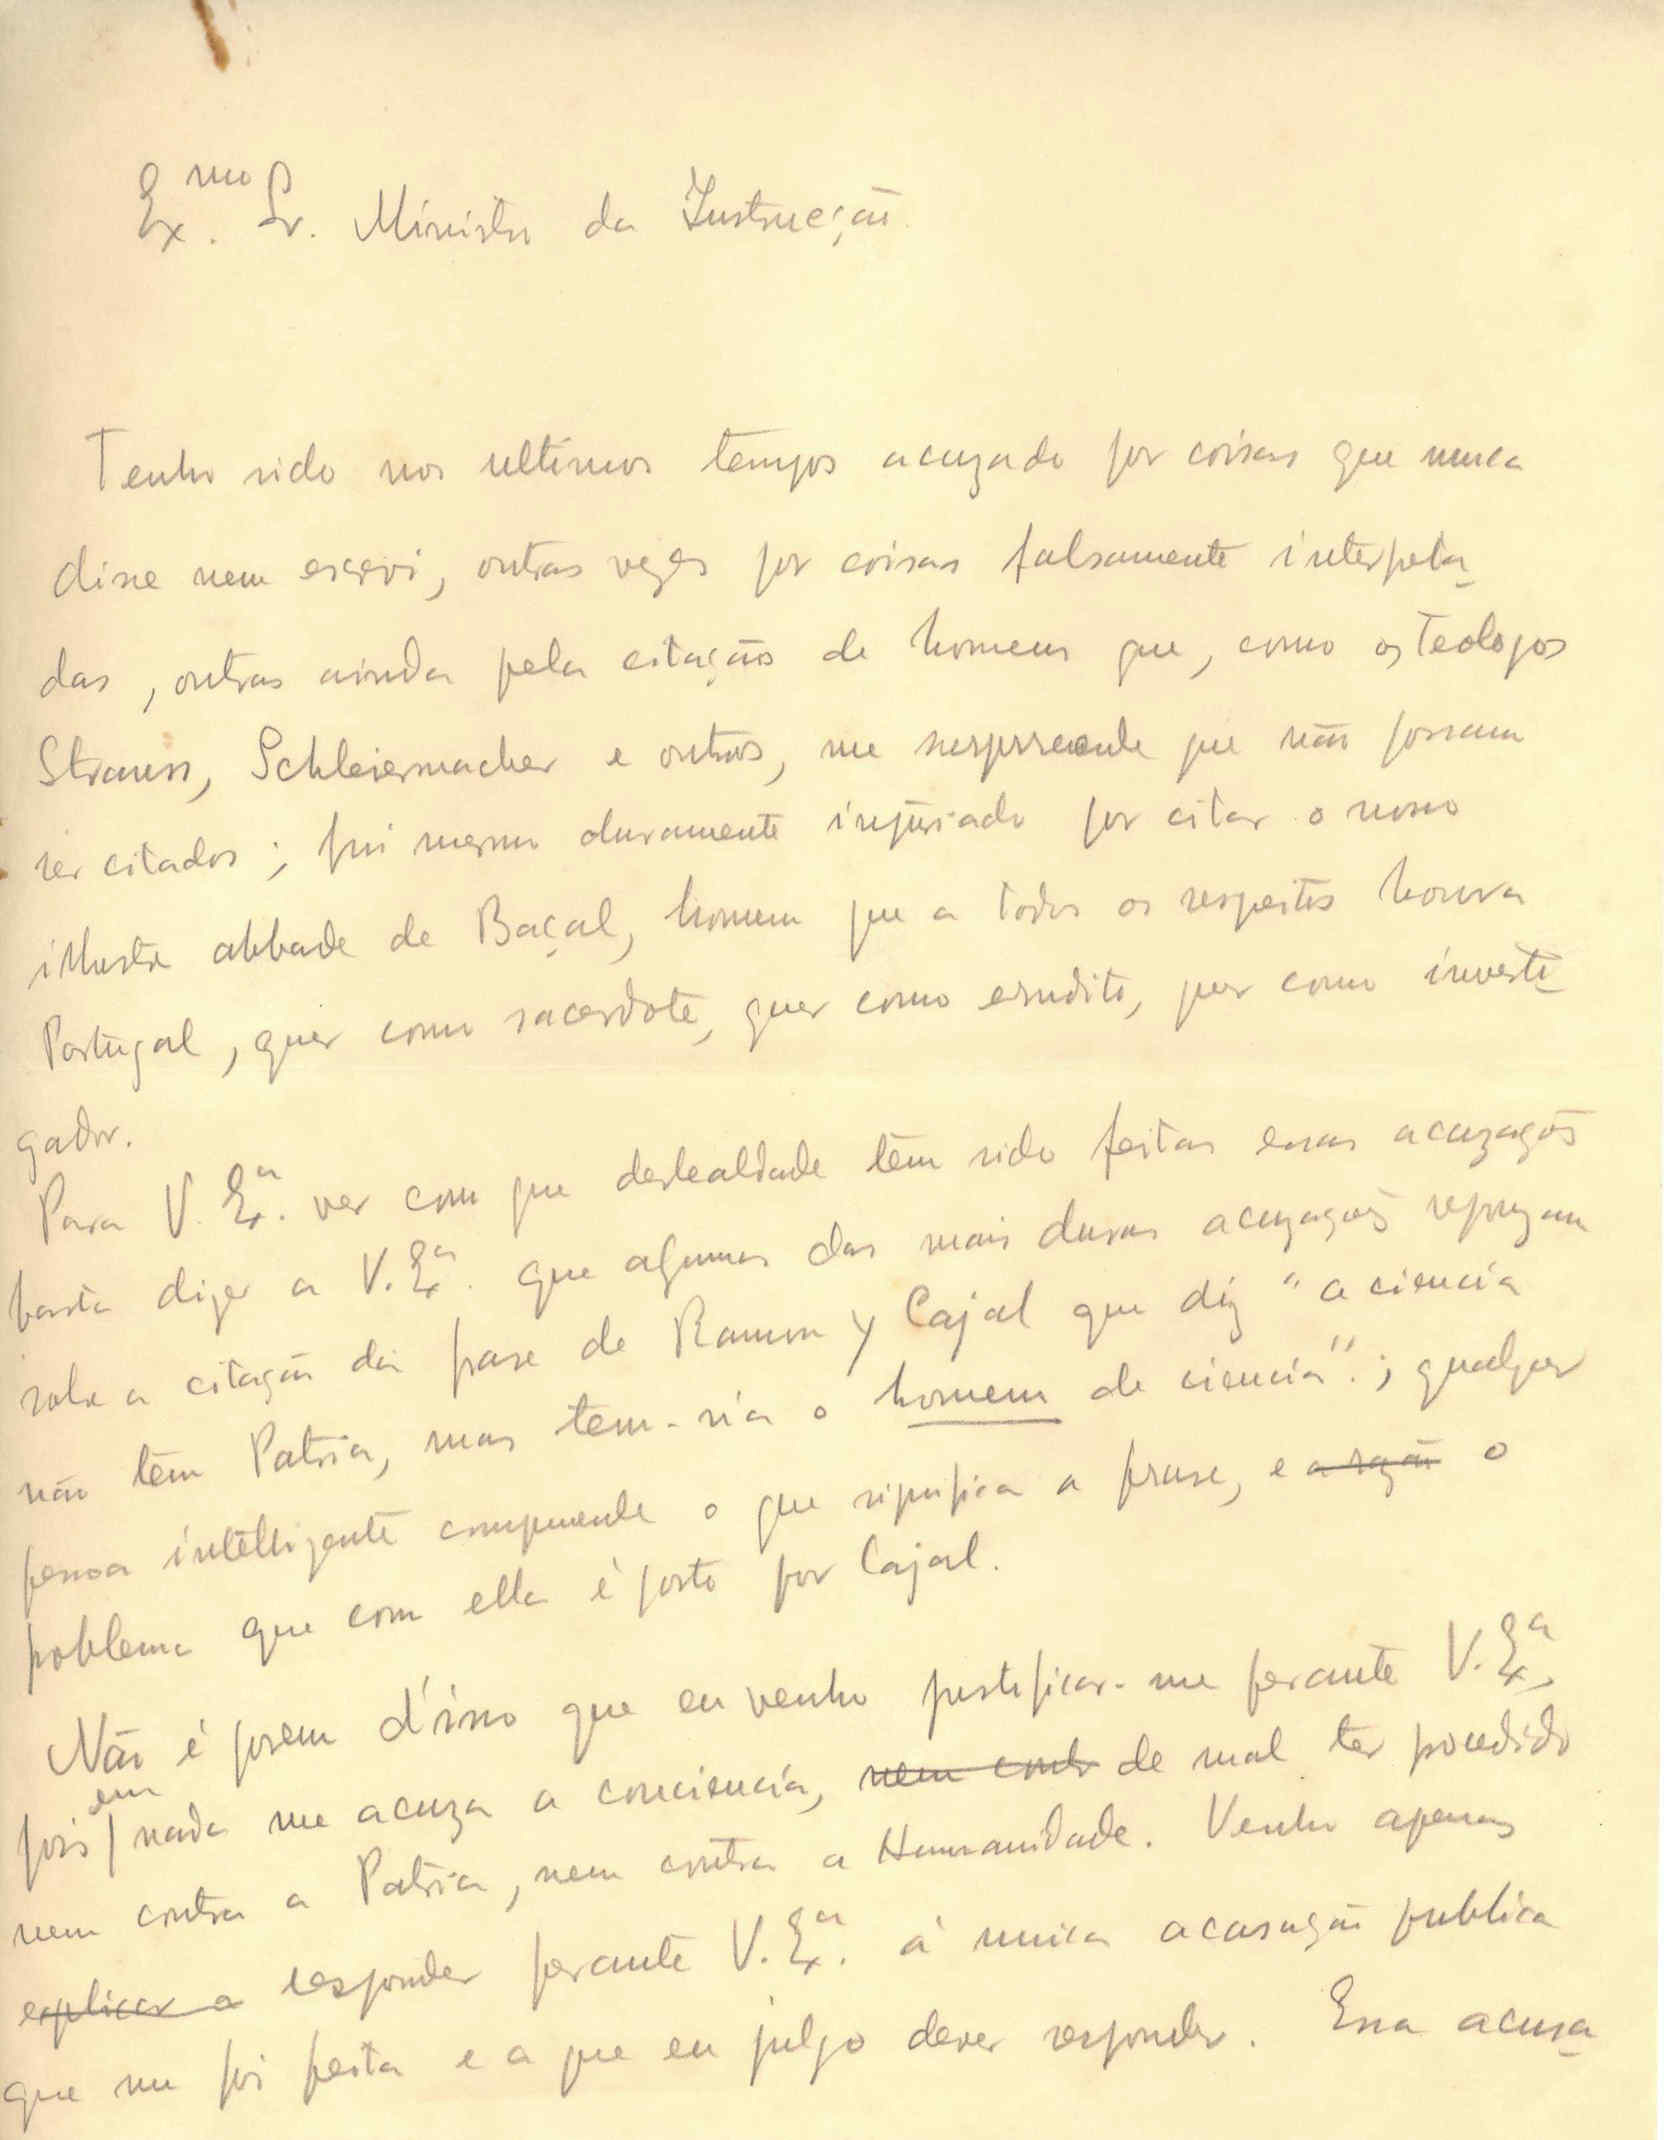 Ex.mo Sr. Ministro da Instrucção.
Tenho sido nos ultimos tempos acuzado por coisas que nunca
disse nem escrevi, outras vezes por coisas falsamente interpeta-
das, outras ainda pela citação de homens que, como os Teologos
Strauss, Schleiermacher e outros, me surpreende que não possam
ser citados; fui mesmo duramente injuriado por citar o nosso
illustre abbade de Baçal, homem que a todos os respeitos honra
Portugal, quer como sacerdote, quer como erudito, quer como investi-
gador.
Para V. Ex.a ver com que deslealdade têm sido feitas essas acuzações
basta dizer a V. Ex.a que algumas das mais duras acuzações repouzam
sobre a citação da frase de Ramon y Cajal que diz "a ciencia
não têm Patria, mas tem-na o homem de ciencia".; qualquer
pessoa intelligente compreende o que significa a frase, e a razão o
problema que com ella é posto por Cajal.
Não é porem d'isso que eu venho justificar-me perante V. Ex.a,
pois em nada me acuza a conciencia, nem contr de mal ter procedido
nem contra a Patria, nem contra a Humanidade. Venho apenas
explicar a responder perante V. Ex.a á unica acusação publica
que me foi feita e a que eu julgo dever responder. Essa acusa-